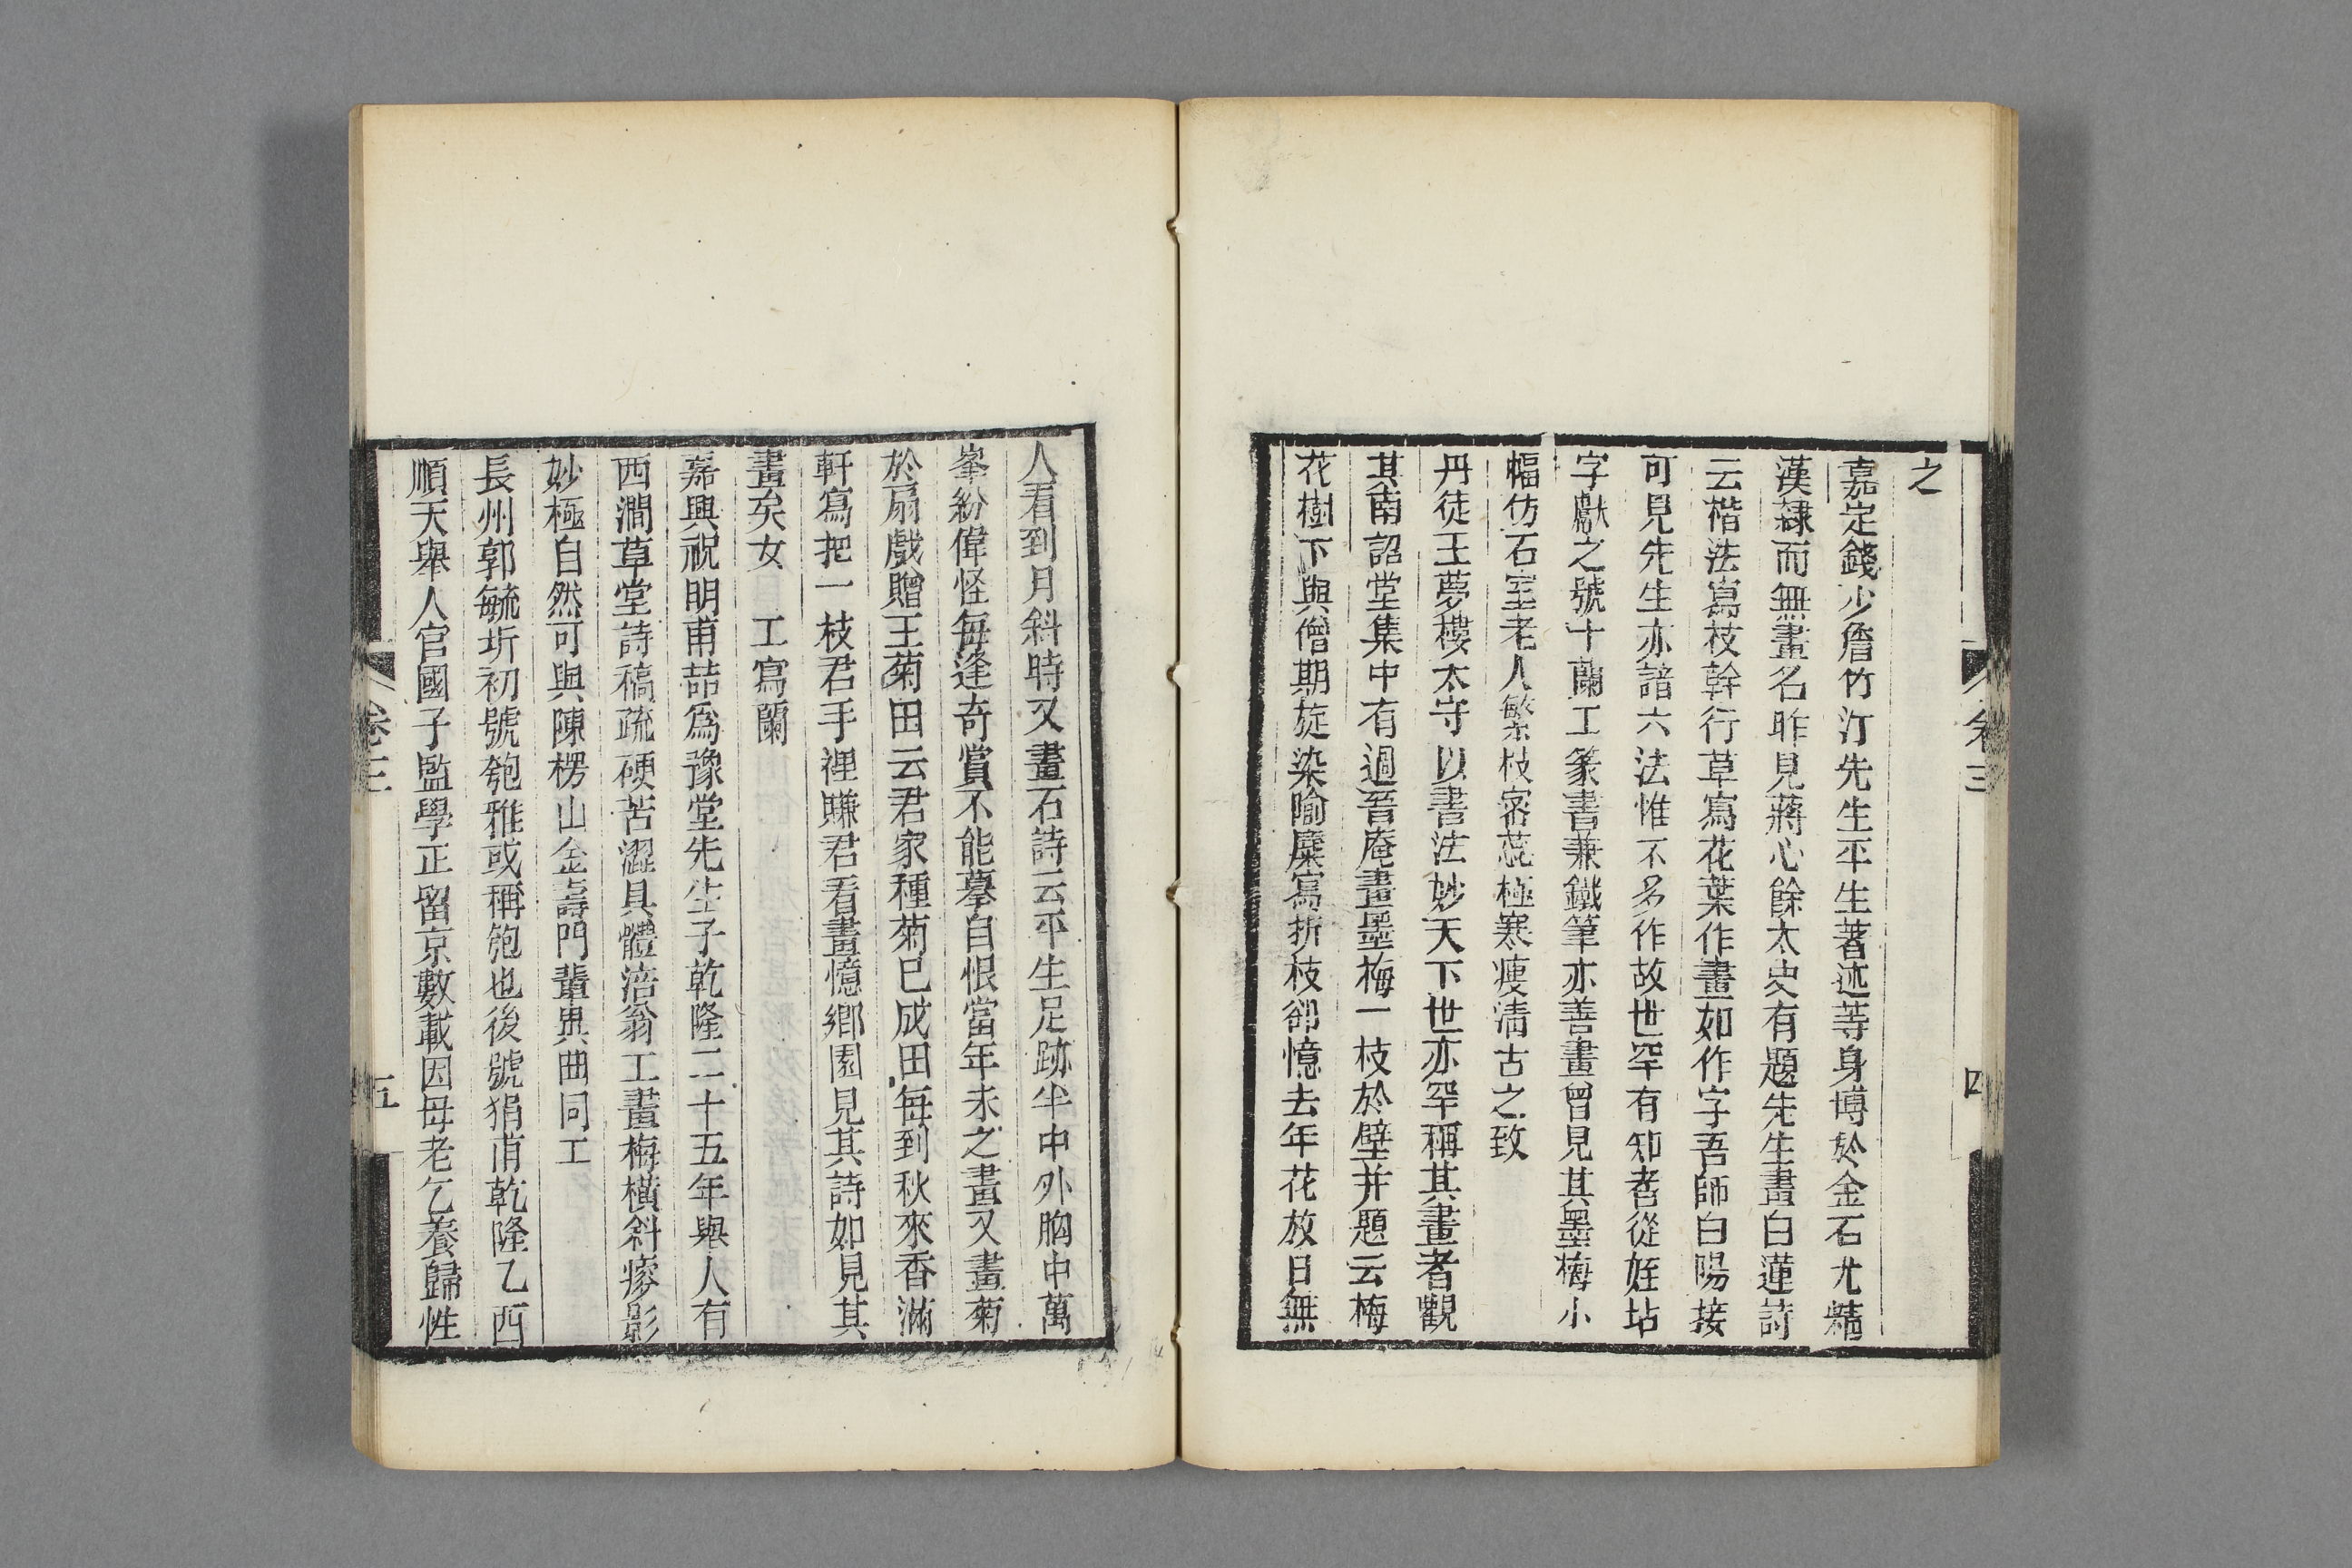 之
嘉定錢少詹竹汀先生平生著述等身博於金石尤精
漢隸而無畫名昨見蔣心餘太史有題先生畫白蓮詩
云楷法寫枝幹行草寫花葉作畫如作字吾師白陽接
可見先生亦諳六法惟不多作故世罕有知者從姪坫
字獻之號十蘭工篆書兼鐵筆亦善畫曾見其墨梅小
幅仿石室老人繁枝密蕊極寒瘦清古之致
丹徒王夢樓太守以書法妙天下世亦罕稱其畫者觀
其南詔堂集中有過晉庵畫墨梅一枝於壁并題云梅
花樹下與僧期旋染隃糜寫折枝卻憶去年花放日無
卷三
四
人看到月斜時又畫石詩云平生足跡半中外胸中萬
峯紛偉怪每逢奇賞不能摹自恨當年未之畫又畫菊
於扇戲贈王菊田云君家種菊已成田每到秋來香滿
軒寫把一枝君手裡賺君看畫憶鄉園見其詩如見其
畫矣女 工寫蘭
嘉興祝明甫喆爲豫堂先生子乾隆二十五年舉人有
西澗草堂詩稿疏硬苦澀具體涪翁工畫梅橫斜瘮影
妙極自然可與陳楞山金壽門輩異曲同工
長州郭毓圻初號匏雅或稱匏也後號狷甫乾隆乙酉
順天舉人官國子監學正留京數載因母老乞養歸性
卷三
五